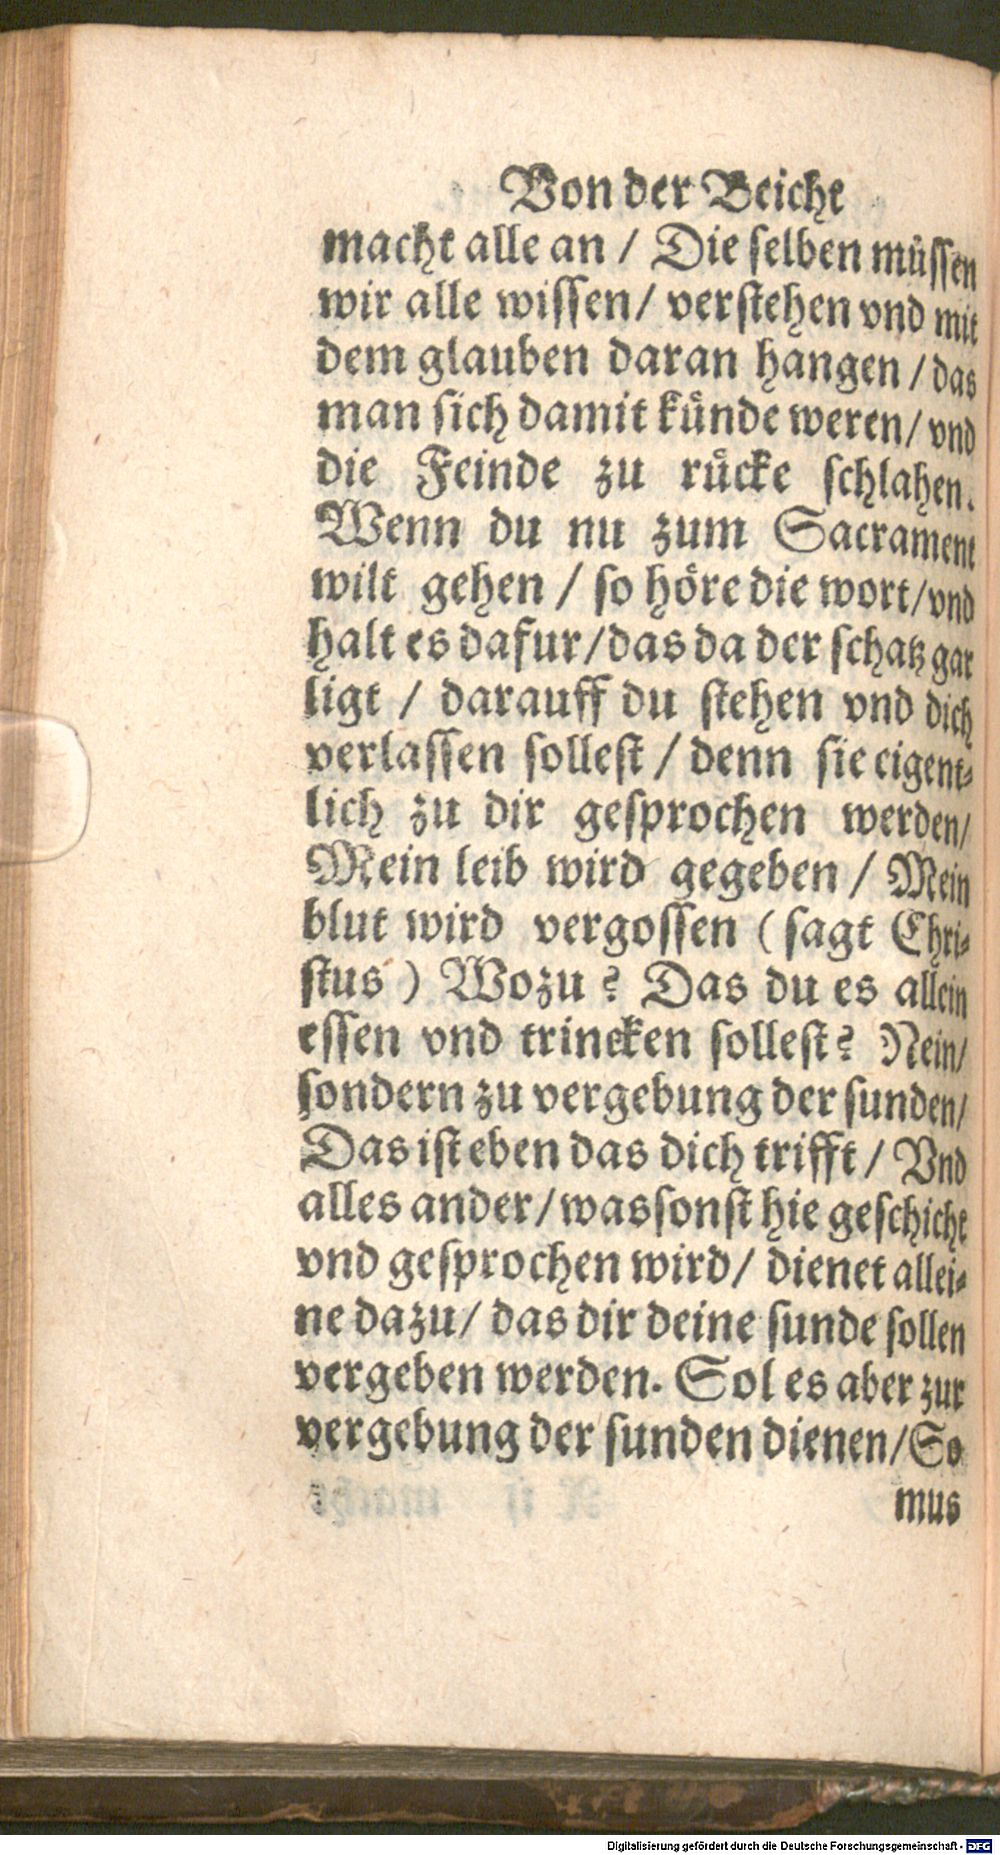 Von der Beicht
macht alle an / Die selben müssen
wir alle wissen / verstehen vnd mit
dem glauben daran hangen / das
man sich damit künde weren / vnd
die Feinde zu rücke schlahen.
Wenn du nu zum Sacrament
wilt gehen / so höre die wort / vnd
halt es dafur / das da der schatz gar
ligt / darauff du stehen vnd dich
verlassen sollest / denn sie eigent-
lich zu dir gesprochen werden /
Mein leib wird gegeben / Mein
blut wird vergossen ( sagt Chri-
stus ) Wozu ? Das du es allein
essen vnd trincken sollest ? Nein /
sondern zu vergebung der sunden /
Das ist eben das dich trifft / Vnd
alles ander / was sonst hie geschicht
vnd gesprochen wird / dienet allei-
ne dazu / das dir deine sunde sollen
vergeben werden. Sol es aber zur
vergebung der sunden dienen / So
mus
Digitalisierung gefördert durch die Deutsche Forschungsgemeinschaft - DFG